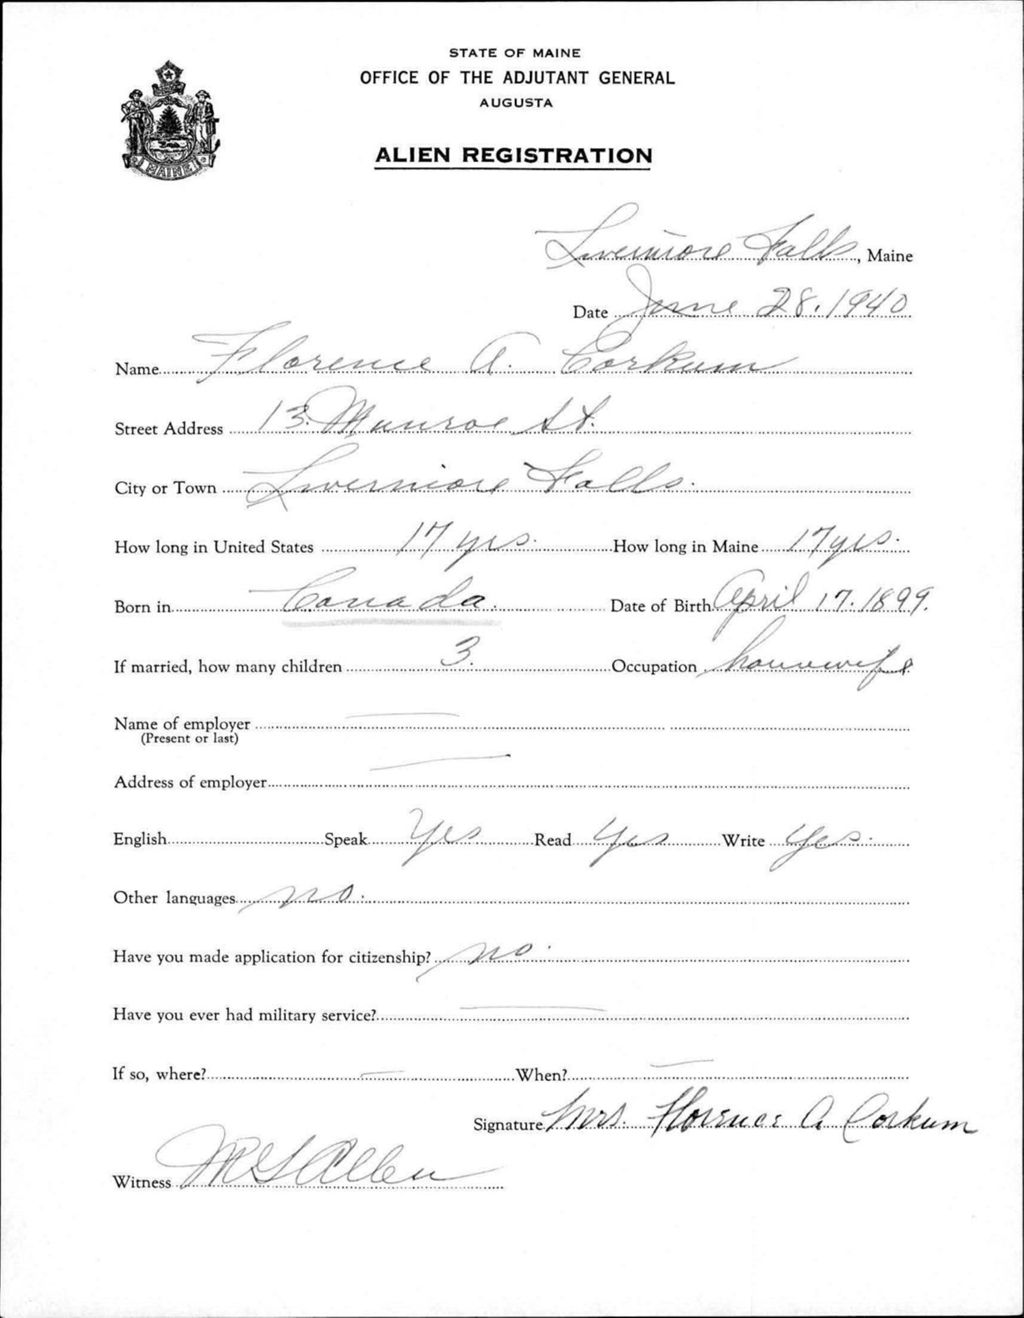 STATE OF MAINE
OFFICE OF THE ADJUTANT GENERAL
AUGUSTA
ALIEN REGISTRATION
MAINE
Livermore Falls, Maine
Date June 28. 1940
Name Florence A. Corkum
Street Address 13 Munroe St.
City or Town Livermore Falls.
How long in United States 17 yrs. How long in Maine 17 yrs.
Born in Canada. Date of Birth April 17. 1899.
If married, how many children 3. Occupation housewife
Name of employer —
(Present or last)
Address of employer —
English Speak Yes Read Yes Write Yes.
Other languages no.
Have you made application for citizenship? no.
Have you ever had military service? —
If so, where? — When? —
Signature Mrs. Florence A Corkum
Witness M S Allen